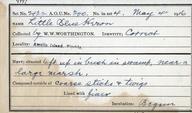 Set No. A.O.U. No. 200. No. set 4. May 4
Name Little Blue Heron
Collected by W. W. WORTHINGTON. Identity: Correct
Locality: Amelia Island Florida
Nest: situated up in bush in swamp, near a
large marsh:
Composed outside of coarse sticks & twigs
Lined with finer
Incubation: Begun